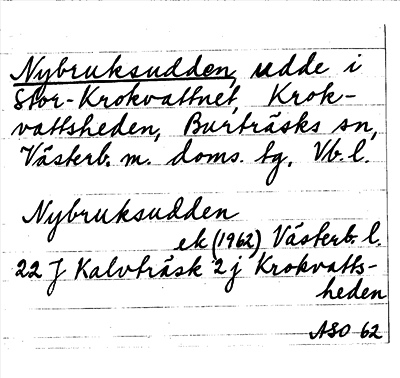 Nybruksudden, udde i
Stor-Krokvattnet, Krok-
vattsheden, Burträsks sn,
Västerb. m. doms. tg, Vb. l.
Nybruksudden
ek (1962) Västerb. l.
22 J Kalvträsk 2 j Krokvatts-
heden
ASO 62